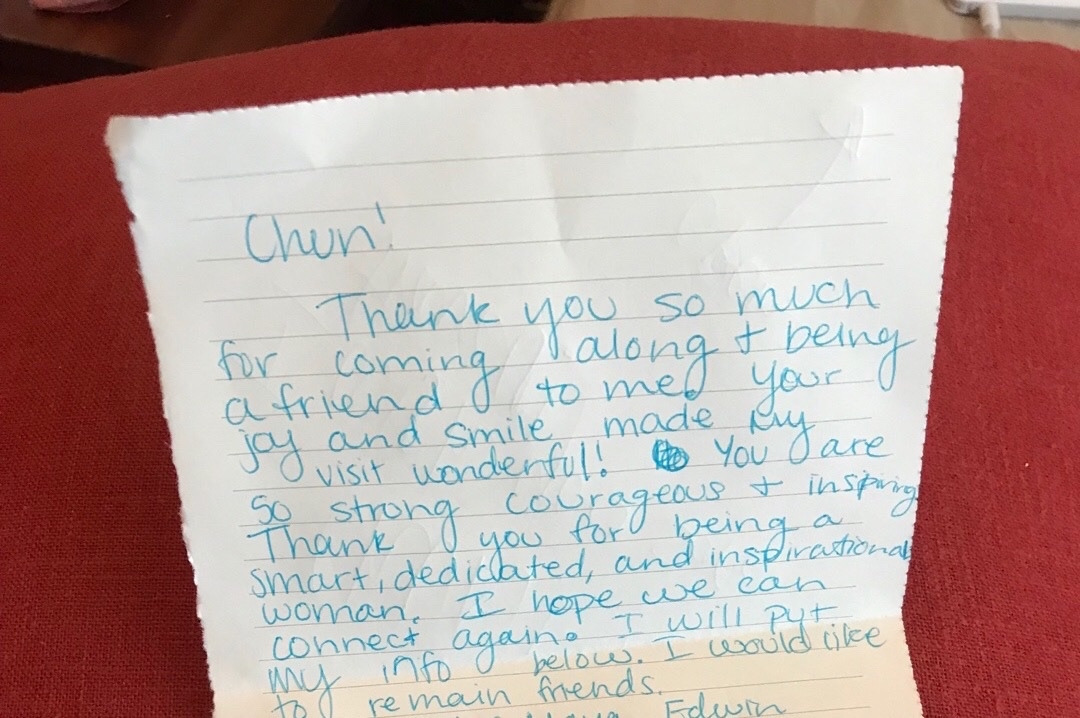 Chun!
Thank you so much
for coming along + being
a friend to me. Your
joy and smile made my
visit wonderful! You are
so strong courageous + inspiring
Thank you for being a
smart, dedicated, and inspirational
woman. I hope we can
connect again. I will put
my info below. I would like
to remain friends.
Edwin